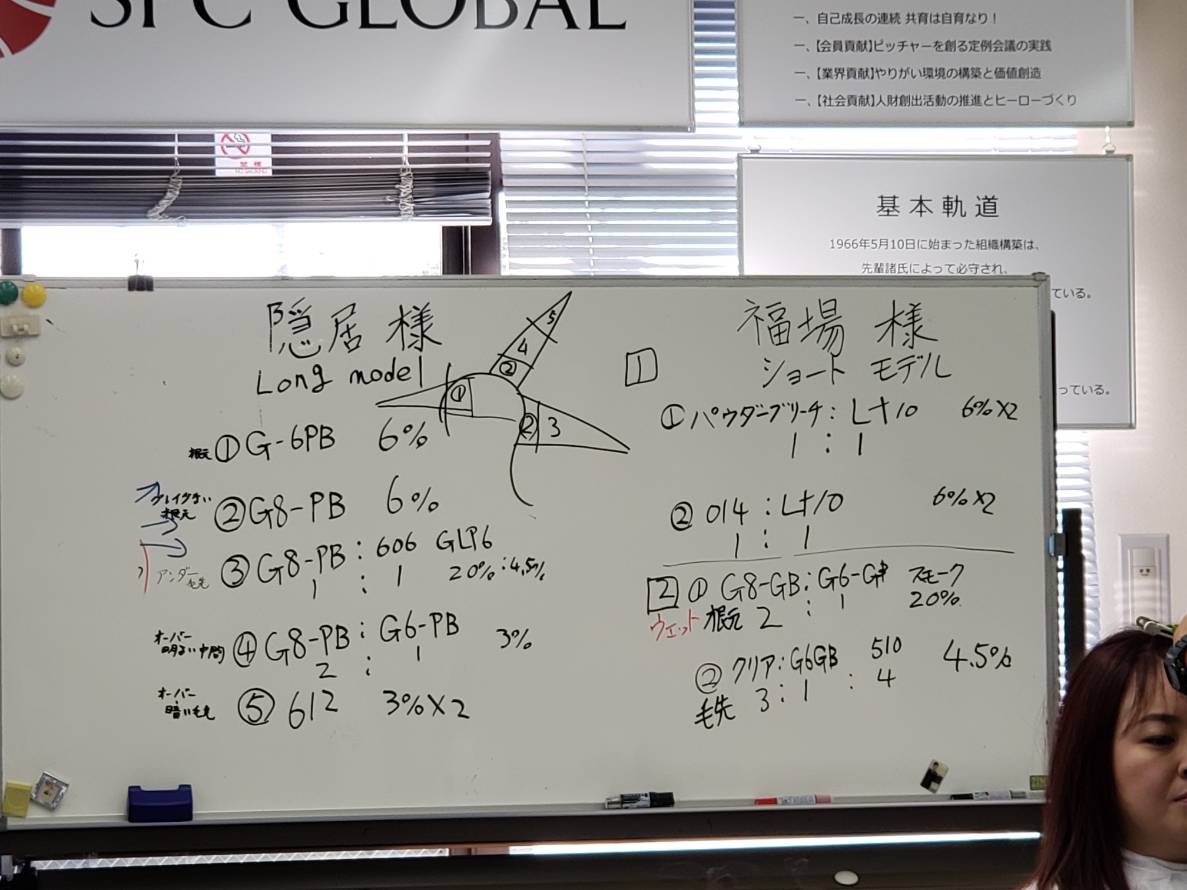 SPC GLOBAL
一、自己成長の連続 共育は自育なり！
一、【会員貢献】ピッチャーを創る定例会議の実践
一、【業界貢献】やりがい環境の構築と価値創造
一、【社会貢献】人財創出活動の推進とヒーローづくり
禁煙
NO SMOKING
基本軌道
1966年5月10日に始まった組織構築は、
先輩諸氏によって必守され、
ている。
っている。
隠居 様
Long model
① ② 4 5
② 3
根元 ① G-6PB 6%
グレイ少ない 根元 ② G8-PB 6%
アンダー 毛先 ③ G8-PB : 606 GLP6
1 : 1 20% : 4.5%
オーバー 明るい中間 ④ G8-PB : G6-PB 3%
2 : 1
オーバー 暗い毛先 ⑤ 612 3%×2
福場 様
1 ショート モデル
① パウダーブリーチ : Lt10 6%×2
1 : 1
② 014 : Lt10 6%×2
1 : 1
2 ① G8-GB : G6-G スモーク
ウェット 根元 2 : 1 20%
② クリア : G6GB 510 4.5%
毛先 3 : 1 : 4